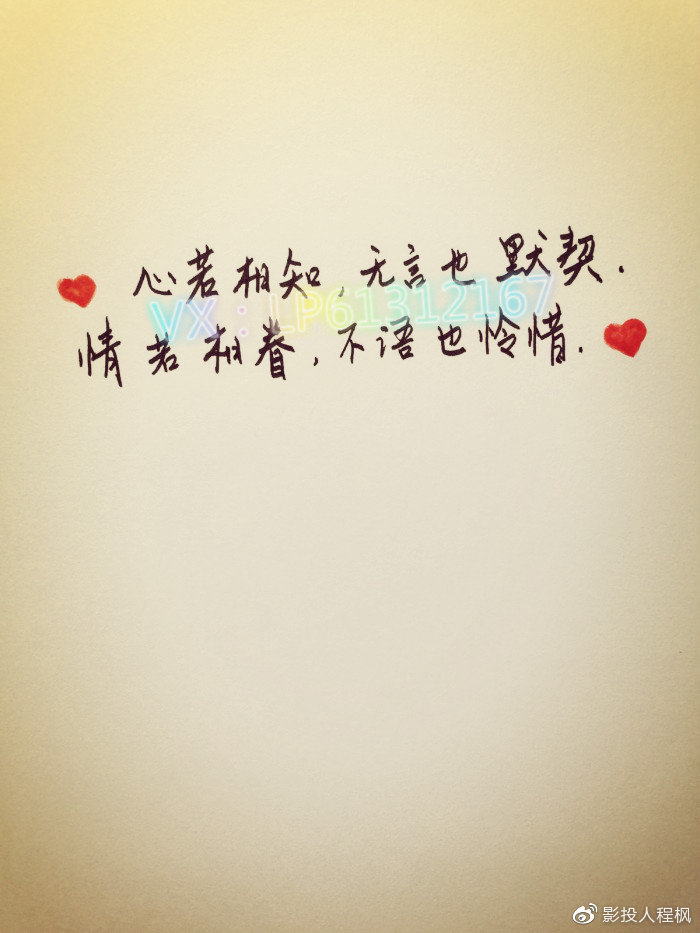 心若相知，无言也默契．
VX：LP61312167
情若相眷，不语也怜惜．
影投人程枫